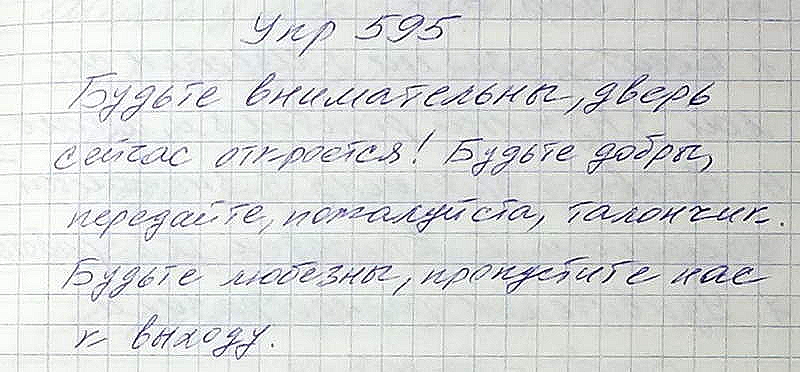 Упр 595
Будьте внимательны, дверь
сейчас откроется! Будьте добры,
передайте, пожалуйста, талончик.
Будьте любезны, пропустите нас
к выходу.